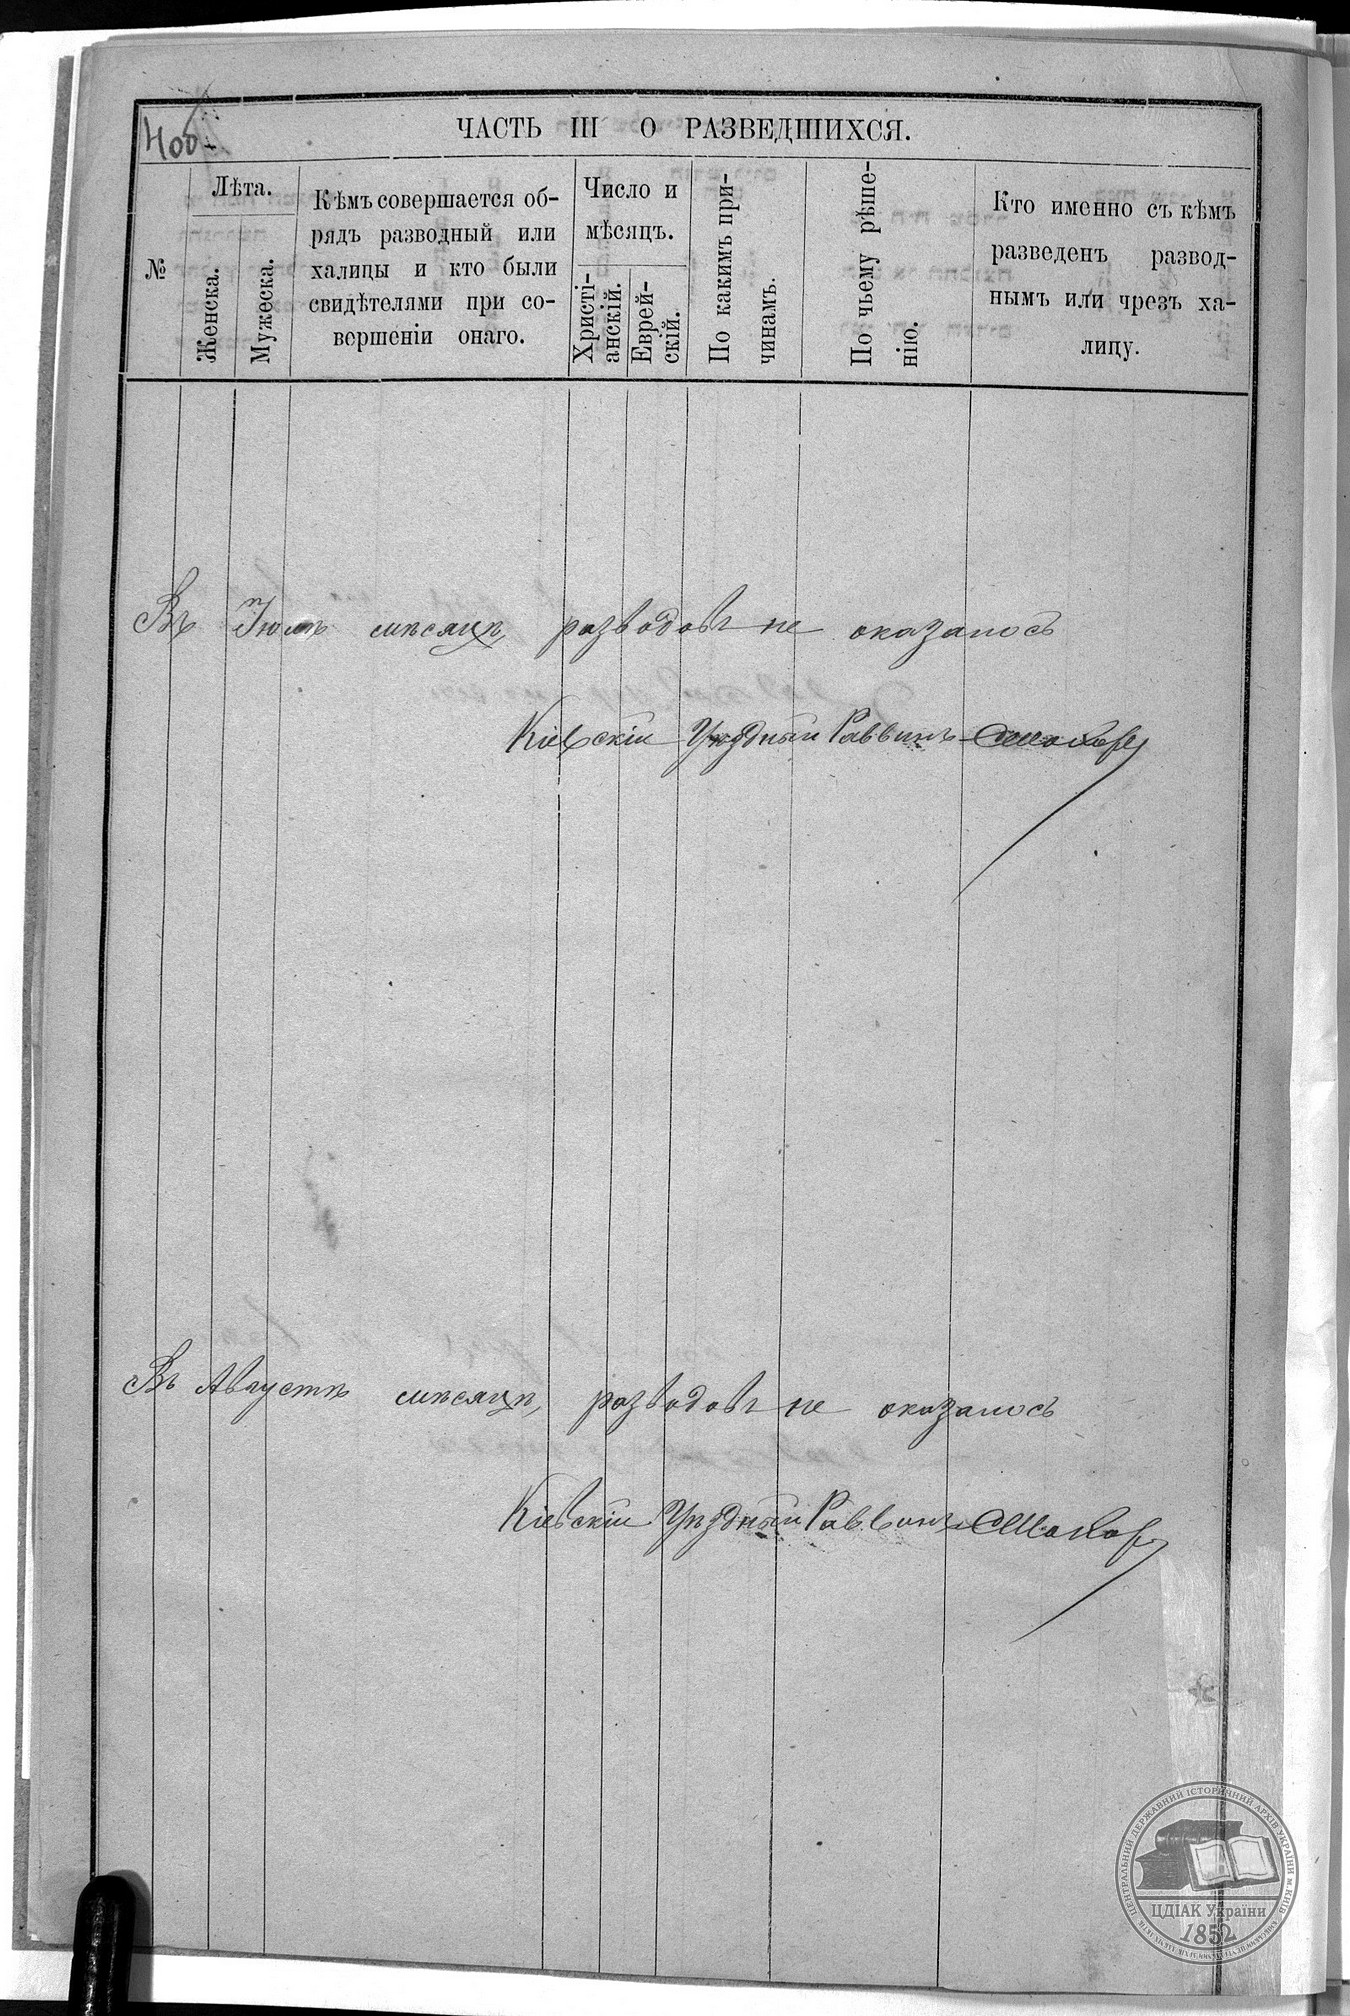 400
ЧАСТЬ III О РАЗВЕДШИХСЯ.
№
Лѣта.
Женска.
Мужеска.
Кѣмъ совершается об-
рядъ разводный или
халицы и кто были
свидѣтелями при со-
вершеніи онаго.
Число и
мѣсяцъ.
Христі-
анскій.
Еврей-
скій.
По какимъ при-
чинамъ.
По чьему рѣше-
нію.
Кто именно съ кѣмъ
разведенъ развод-
нымъ или чрезъ ха-
лицу.
Въ Іюлѣ мѣсяцѣ, разводовъ не оказалось
Кіевскій Уѣздный Раввинъ
Въ Августѣ мѣсяцѣ, разводовъ не оказалось
Кіевскій Уѣздный Раввинъ
ЦЕНТРАЛЬНИЙ ДЕРЖАВНИЙ ІСТОРИЧНИЙ АРХІВ УКРАЇНИ м. КИЇВ
ЦДІАК України
1852